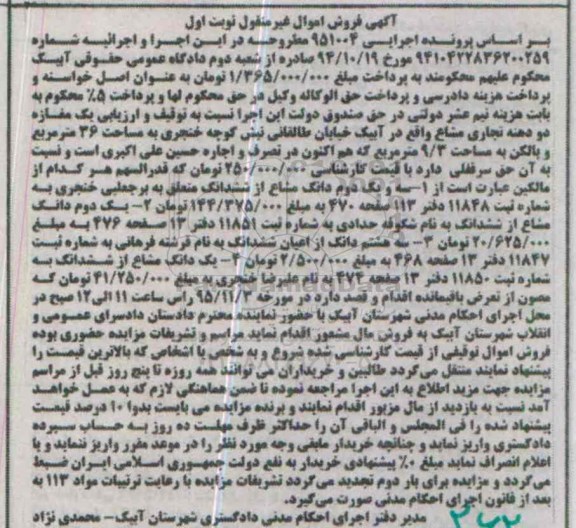 آگهی فروش اموال غیرمنقول نوبت اول
بر اساس پرونده اجرایی ۹۵۱۰۰۴ مطروحه در این اجرا و اجرائیه شماره
۹۴۱۰۴۲۲۸۳۶۲۰۰۲۵۹ مورخ ۹۴/۱۰/۱۹ صادره از شعبه دوم دادگاه عمومی حقوقی آبیک
محکوم علیهم محکومند به پرداخت مبلغ ۱/۳۶۵/۰۰۰/۰۰۰ تومان به عنوان اصل خواسته و
پرداخت هزینه دادرسی و پرداخت حق الوکاله وکیل در حق محکوم لها و پرداخت ۵٪ محکوم به
بابت هزینه نیم عشر دولتی در حق صندوق دولت این اجرا نسبت به توقیف و ارزیابی یک مغازه
دو دهنه تجاری مشاع واقع در آبیک خیابان طالقانی نبش کوچه خنجری به مساحت ۳۶ مترمربع
و بالکن به مساحت ۹/۳ مترمربع که هم اکنون در تصرف و اجاره حسین علی اکبری است و نسبت
به آن حق سرقفلی دارد با قیمت کارشناسی ۲۵۰/۰۰۰/۰۰۰ تومان که قدرالسهم هر کدام از
مالکین عبارت است از ۱- سه و یک دوم دانگ مشاع از ششدانگ متعلق به برجعلی خنجری به
شماره ثبت ۱۱۸۴۸ دفتر ۱۱۳ صفحه ۴۷۰ به مبلغ ۱۴۴/۳۷۵/۰۰۰ تومان ۲- یک دوم دانگ
مشاع از ششدانگ به نام شکوفه حدادی به شماره ثبت ۱۱۸۵۱ دفتر ۱۳ صفحه ۴۷۶ به مبلغ
۲۰/۶۲۵/۰۰۰ تومان ۳- سه هشتم دانگ از اعیان ششدانگ به نام فرشته فرهانی به شماره ثبت
۱۱۸۴۷ دفتر ۱۳ صفحه ۴۶۸ به مبلغ ۲/۵۰۰/۰۰۰ تومان ۴- یک دانگ مشاع از ششدانگ به
شماره ثبت ۱۱۸۵۰ دفتر ۱۳ صفحه ۴۷۴ به نام علیرضا خنجری به مبلغ ۴۱/۲۵۰/۰۰۰ تومان که
مصون از تعرض باقیمانده اقدام و قصد دارد در مورخه ۹۵/۱۱/۳ راس ساعت ۱۱ الی ۱۲ صبح در
محل اجرای احکام مدنی شهرستان آبیک با حضور نماینده محترم دادستان دادسرای عمومی و
انقلاب شهرستان آبیک به فروش مال مشعور اقدام نماید مراسم و تشریفات مزایده حضوری بوده
فروش اموال توقیفی از قیمت کارشناسی شده شروع و به شخص یا اشخاص که بالاترین قیمت را
پیشنهاد نمایند منتقل می گردد طالبین و خریداران می توانند همه روزه تا پنج روز قبل از مراسم
مزایده جهت مزید اطلاع به این اجرا مراجعه نموده تا ضمن هماهنگی لازم که به عمل خواهد
آمد نسبت به بازدید از مال مزبور اقدام نمایند و برنده مزایده می بایست بدوا ۱۰ درصد قیمت
پیشنهاد شده را فی المجلس و الباقی آن را حداکثر ظرف مهلت ده روز به حساب سپرده
دادگستری واریز نماید و چنانچه خریدار مابقی وجه مورد نظر را در موعد مقرر واریز ننماید و یا
اعلام انصراف نماید مبلغ ۱۰٪ پیشنهادی خریدار به نفع دولت جمهوری اسلامی ایران ضبط
می گردد و مزایده برای بار دوم تجدید می گردد تشریفات مزایده با رعایت ترتیبات مواد ۱۱۳ به
بعد از قانون اجرای احکام مدنی صورت می گیرد.
مدیر دفتر اجرای احکام مدنی دادگستری شهرستان آبیک- محمدی نژاد